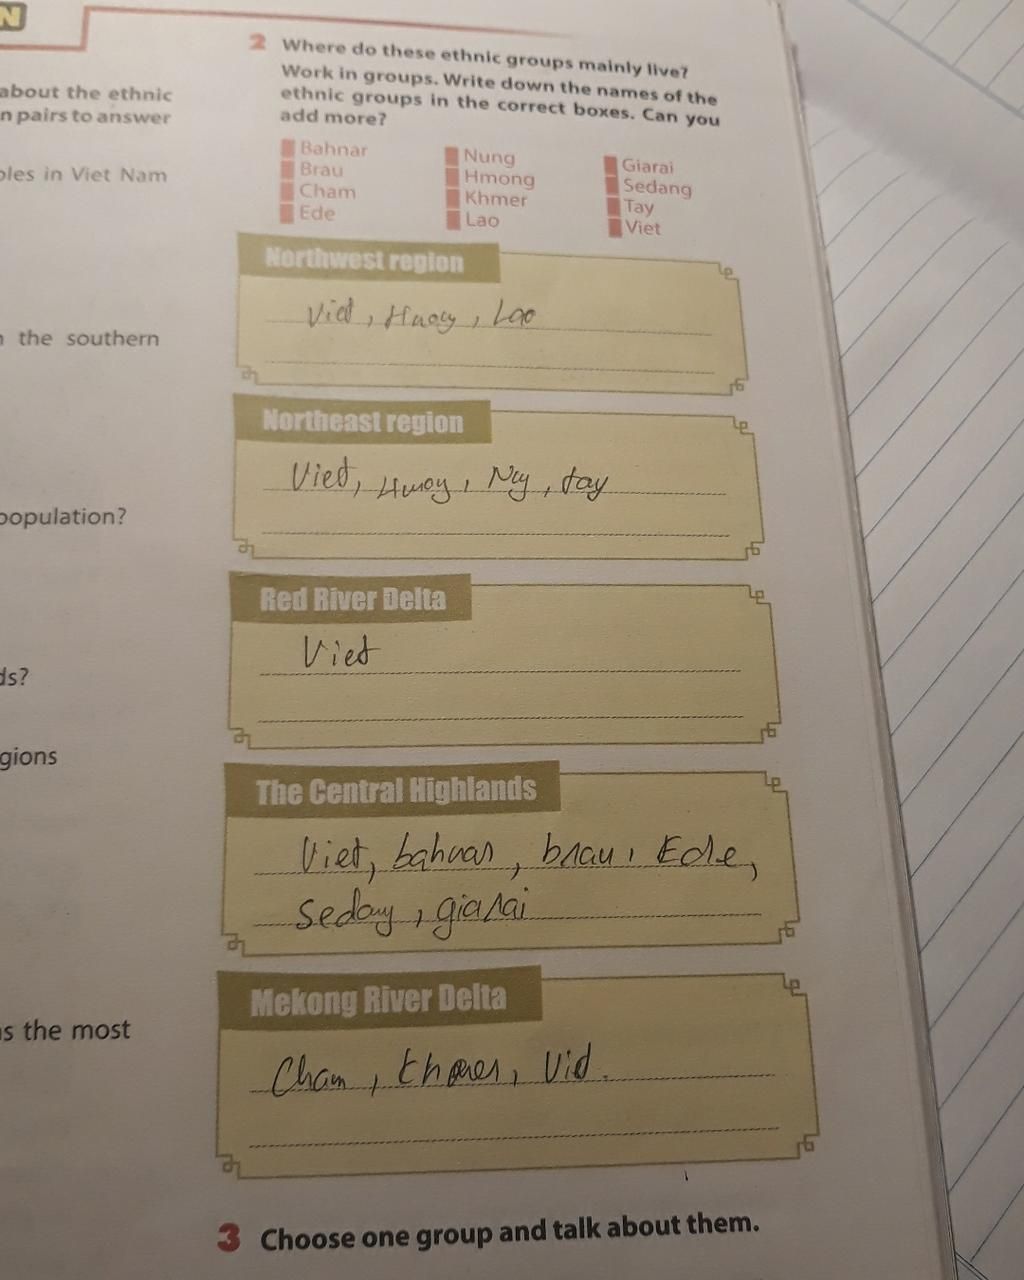 N
about the ethnic
n pairs to answer
ples in Viet Nam
n the southern
population?
ds?
gions
as the most
2 Where do these ethnic groups mainly live?
Work in groups. Write down the names of the
ethnic groups in the correct boxes. Can you
add more?
Bahnar
Brau
Cham
Ede
Nung
Hmong
Khmer
Lao
Giarai
Sedang
Tay
Viet
Northwest region
Viet, Hmong, Lao
Northeast region
Viet, Hmong, Nung, tay
Red River Delta
Viet
The Central Highlands
Viet, bahnar, brau, Ede,
sedang, giarai
Mekong River Delta
Cham, khmer, Viet.
3 Choose one group and talk about them.